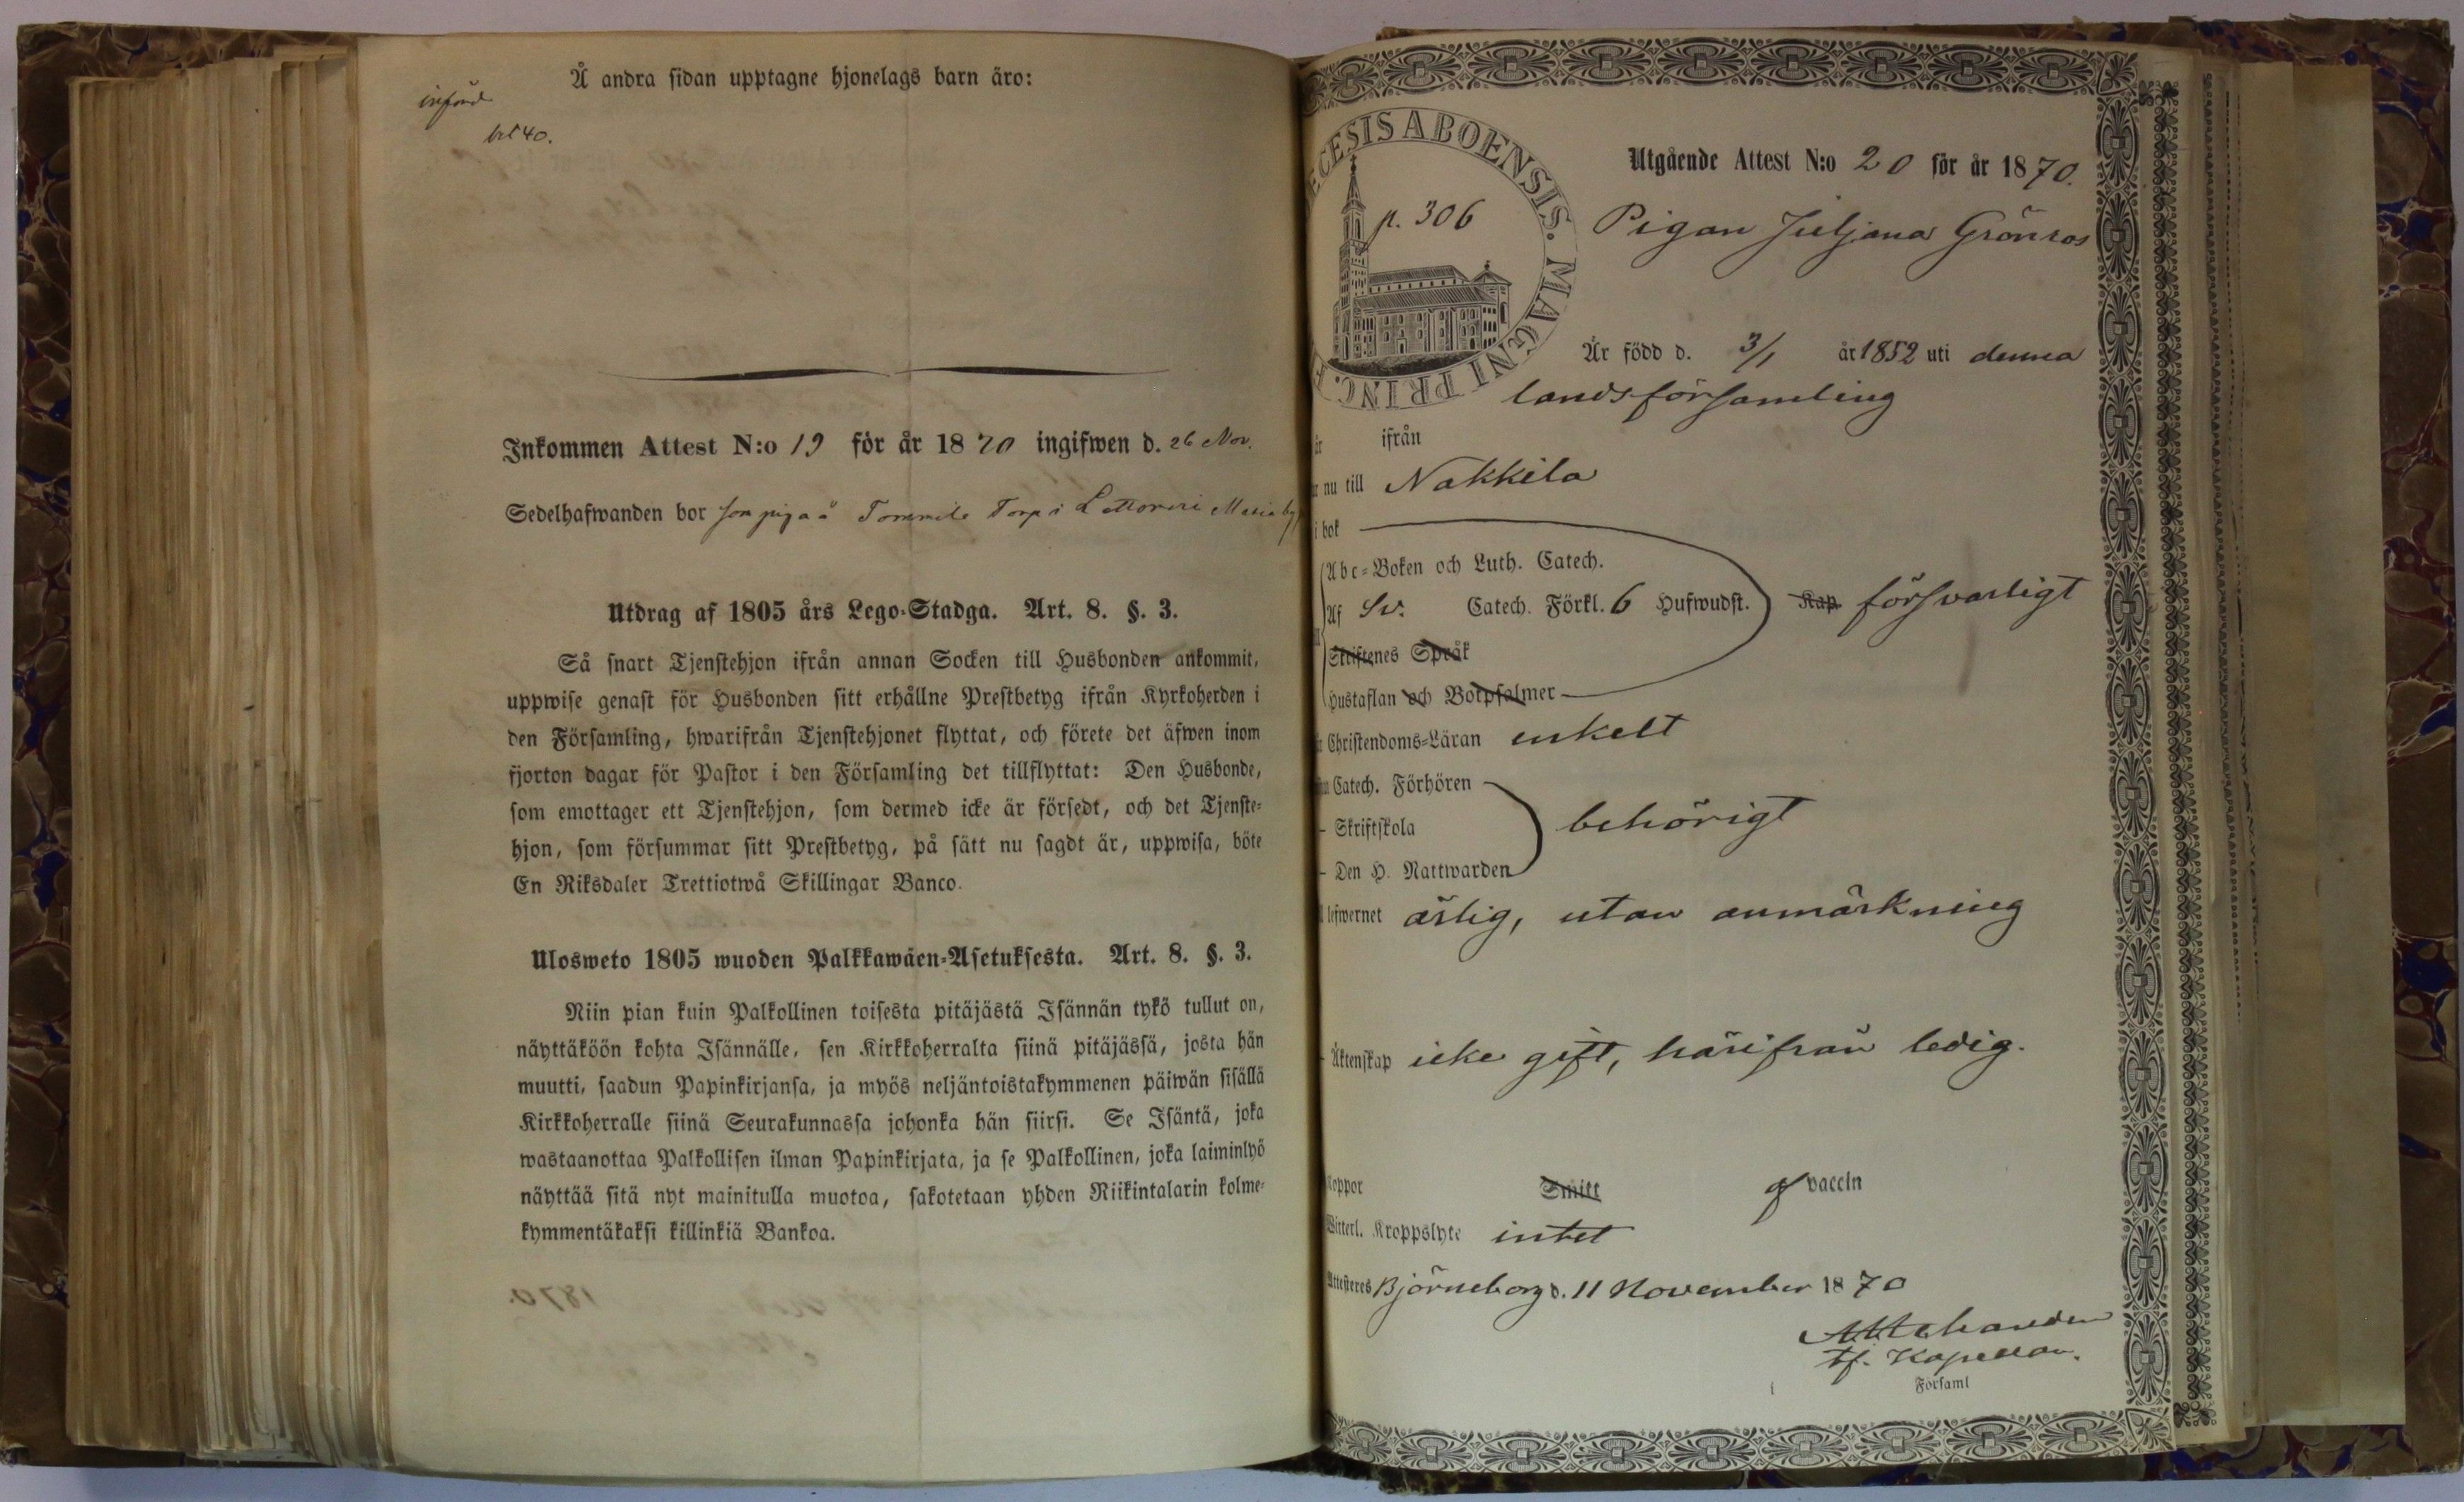 införd
Å andra sidan upptagne hjonelags barn äro:
Inkommen Attest N:o 19 för år 1870 ingifwen d. 26 Nov.
Sedelhafwanden bor som piga å Torp i
Utdrag af 1805 års Lego-Stadga. Art. 8. §. 3.
Så snart Tjenstehjon ifrån annan Socken till Husbonden ankommit,
uppwise genast för Husbonden sitt erhållne Prestbetyg ifrån Kyrkoherden i
den Församling, hwarifrån Tjenstehjonet flyttat, och förete det äfwen inom
fjorton dagar för Pastor i den Församling det tillflyttat: Den Husbonde,
som emottager ett Tjenstehjon, som dermed icke är försedt, och det Tjenste-
hjon, som försummar sitt Prestbetyg, på sätt nu sagdt är, uppwisa, böte
En Riksdaler Trettiotwå Skillingar Banco.
Ulosweto 1805 wuoden Palkkawäen-Asetuksesta. Art. 8. §. 3.
Niin pian kuin Palkollinen toisesta pitäjästä Isännän tykö tullut on,
näyttäköön kohta Isännälle, sen Kirkkoherralta siinä pitäjässä, josta hän
muutti, saadun Papinkirjansa, ja myös neljäntoistakymmenen päiwän sisällä
Kirkkoherralle siinä Seurakunnassa johonka hän siirsi. Se Isäntä, joka
wastaanottaa Palkollisen ilman Papinkirjata, ja se Palkollinen, joka laiminlyö
näyttää sitä nyt mainitulla muotoa, sakotetaan yhden Riikintalarin kolme-
kymmentäkaksi killinkiä Bankoa.
ABOENSIS. MAGNI PRINC.
p. 306
Utgående Attest N:o 20 för år 1870.
Pigan Juljana Grönros
Är född d. 3/1 år 1852 uti denna
landsförsamling
ifrån
nu till Nakkila
i bok
Abc-Boken och Luth. Catech.
Af Sv. Catech. Förkl. 6 Hufwudst. Kap. försvarligt
Skriftenes Språk
Hustaflan och Botpsalmer
Christendoms-Läran enkelt
Catech. Förhören
Skriftskola behörigt
Den H. Nattwarden
lefwernet ärlig, utan anmärkning
Äktenskap icke gift, härifrån ledig.
Koppor Smitt af vaccin
Witterl. Kroppslyte intet
Attesteres Björneborg d. 11 November 1870
tf. Kapellan.
i Församl